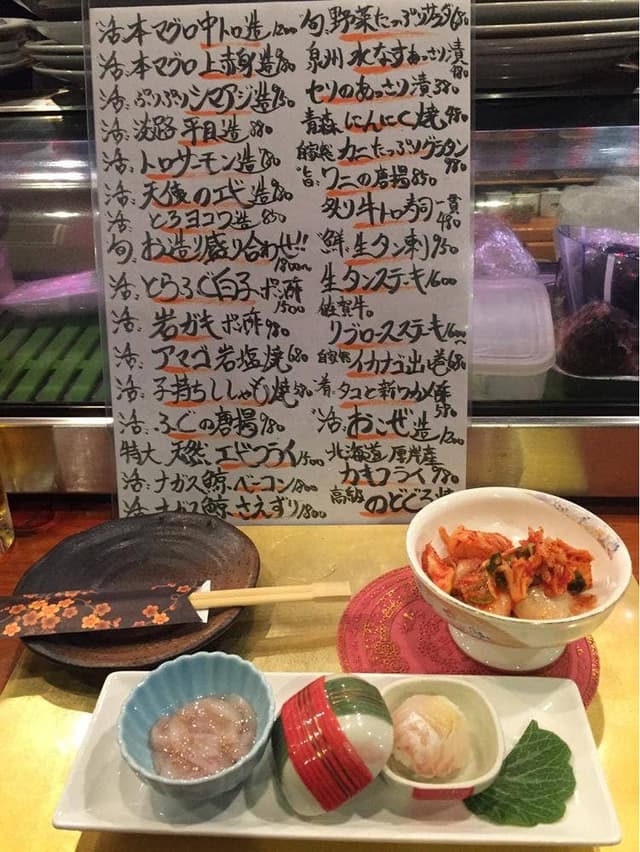 活 本マグロ中トロ造 1200
活 本マグロ上赤身造
活 ぷりぷりシマアジ造
活 淡路 平目造 880
活 トロサーモン造 780
活 天使のエビ造
活 とろヨコワ造 850
旬 お造り盛り合わせ!! 1800
活 とらふぐ白子ポン酢 1500
活 岩ガキポン酢 980
活 アマゴ岩塩焼 680
活 子持ちししゃも焼 580
活 ふぐの唐揚 980
特大 天然エビフライ 1500
活 ナガス鯨ベーコン 1800
活 ナガス鯨さえずり 1800
旬 野菜たっぷりサラダ 680
泉州 水なすあっさり漬 480
セリのあっさり漬 380
青森 にんにく焼 480
自家製 カニたっぷりグラタン 980
旨 ワニの唐揚 850
炙り牛トロ寿司 一貫 480
鮮 生タン刺 950
生タンステーキ 1600
佐賀牛
リブロースステーキ 1600
自家製 イカナゴ出し巻 680
タコと新ワカメ酢 580
活 おこぜ造 1200
北海道厚岸産
カキフライ 980
高級 のどぐろ